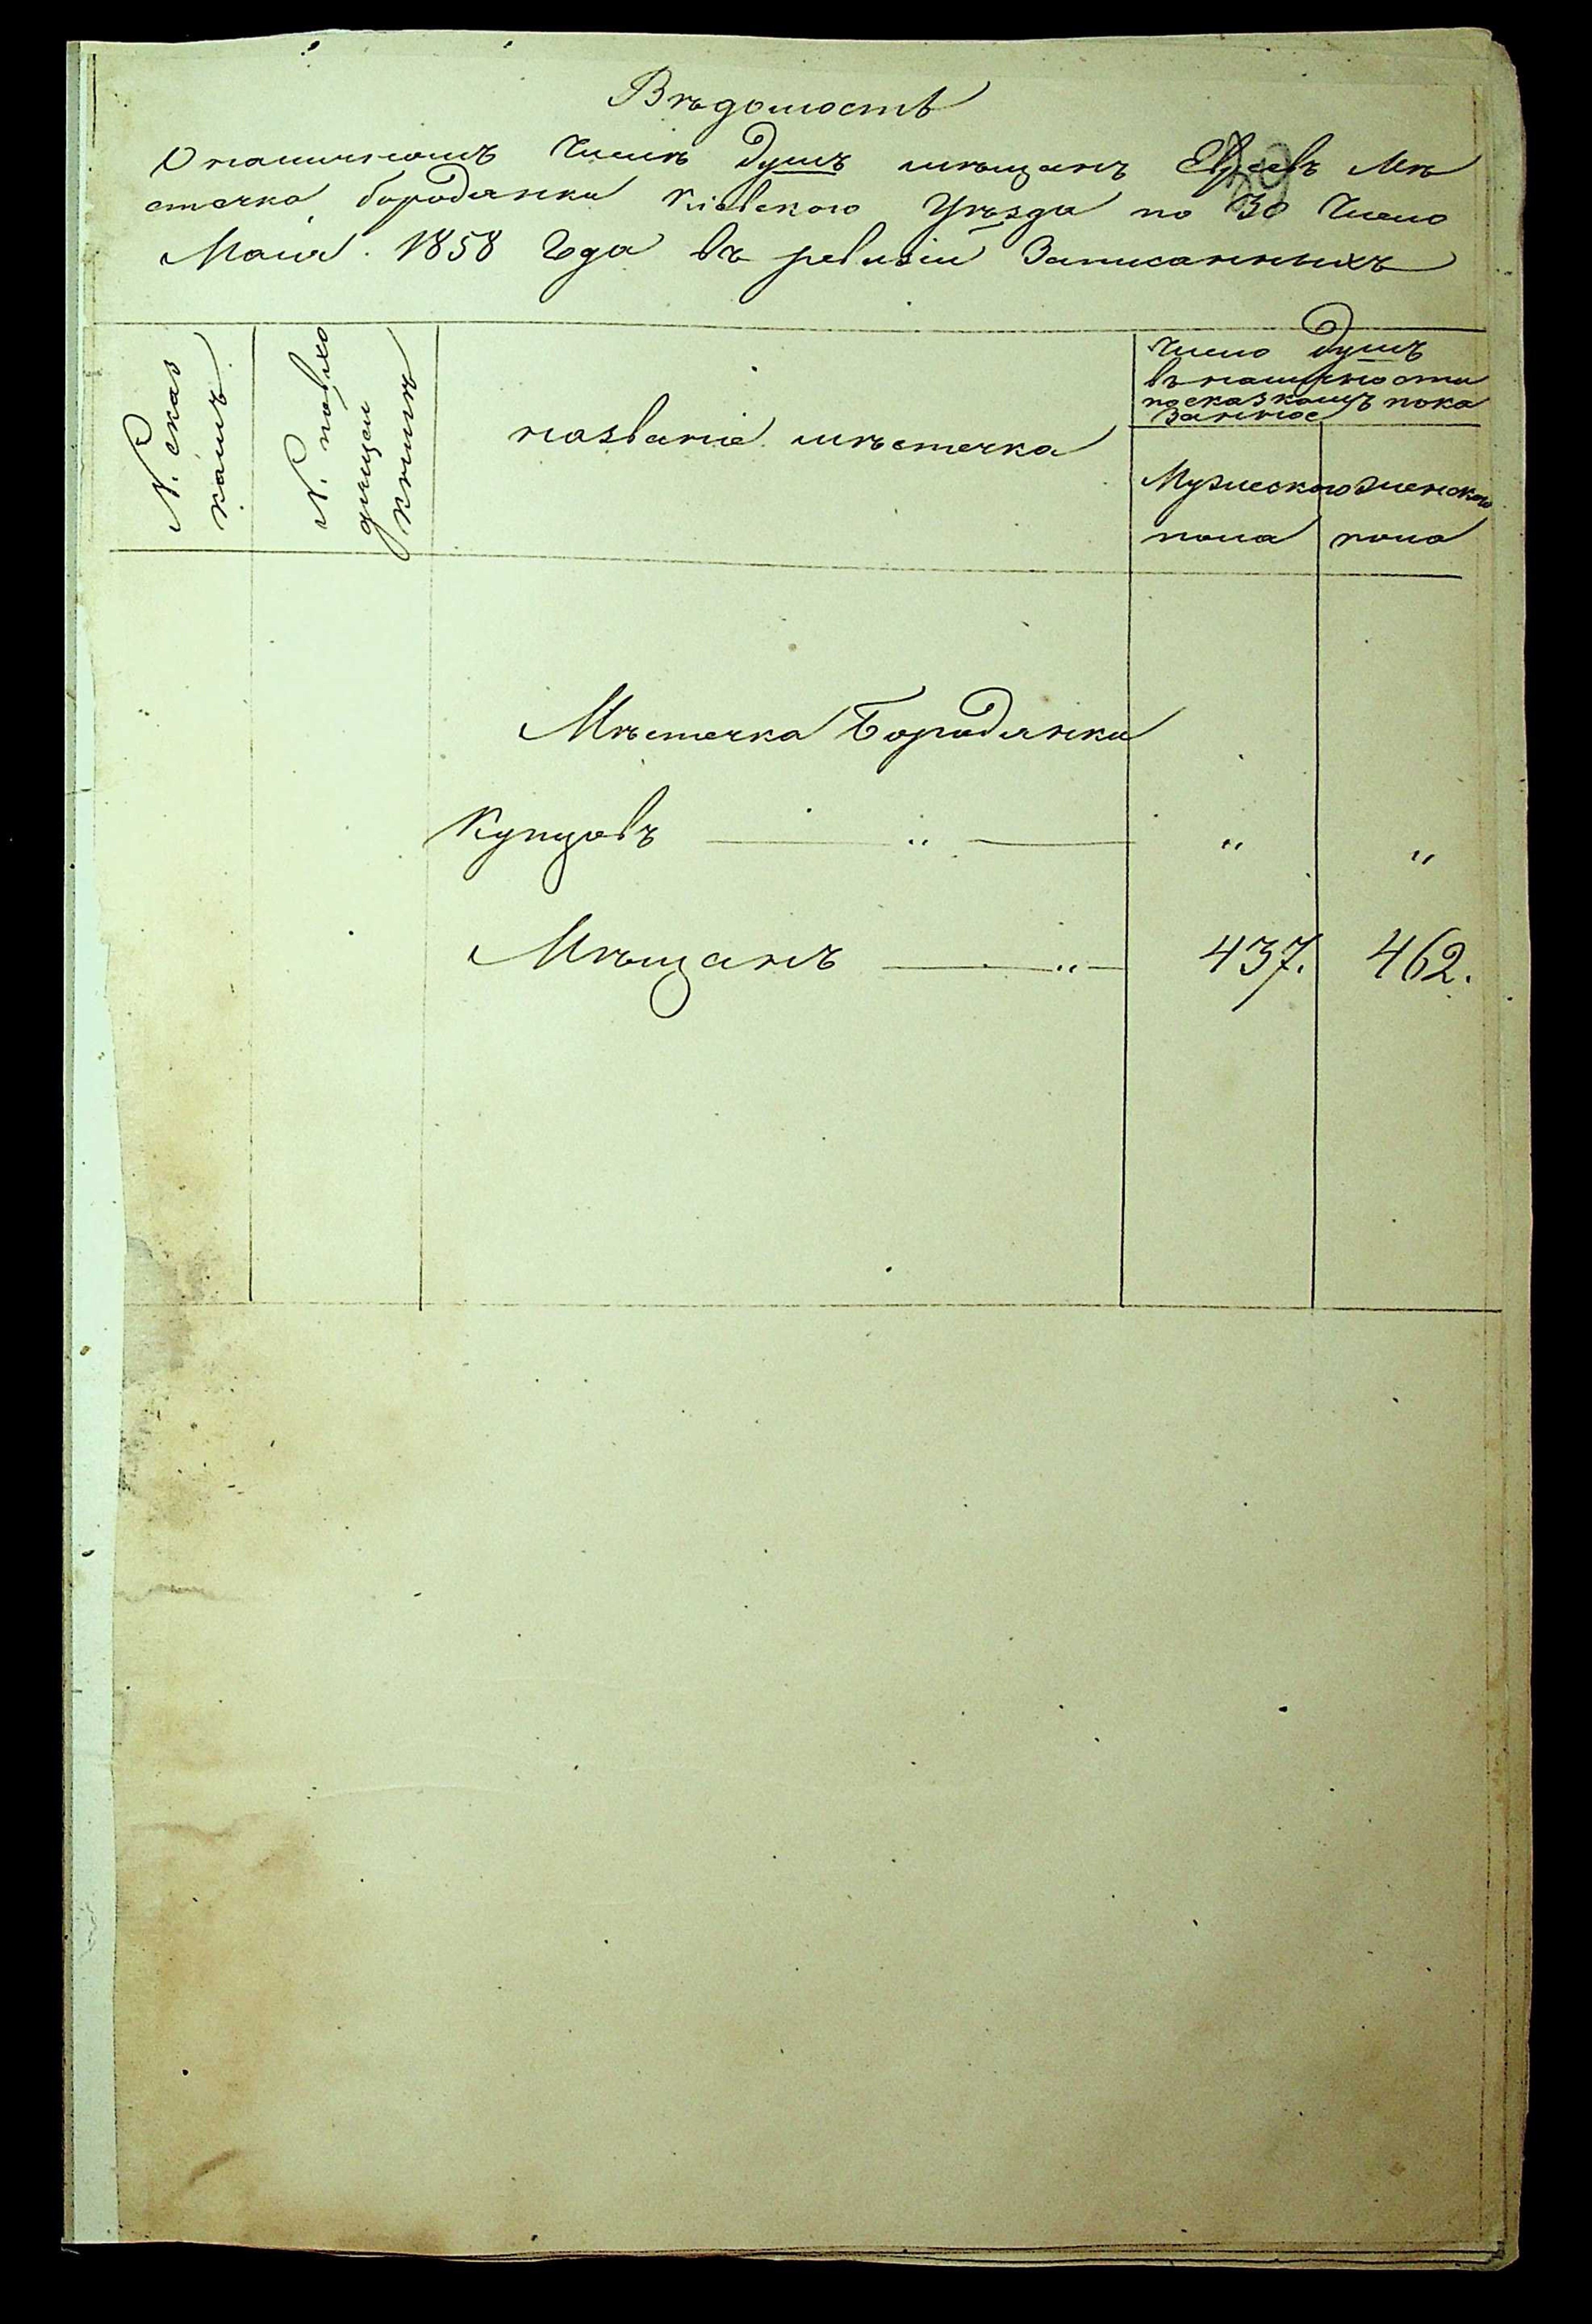 Вѣдомость
О наличномъ Числѣ душъ мѣщанъ Евреевъ Мѣ
стечка бородянки Кіевского Уѣзда по 30 Число
Маия 1858 Года въ ревизіи Записанныхъ
N. сказ
камъ
N. по
книгѣ
названіе мѣстечка
Число душъ
въ наличности
по сказкамъ пока
занное
Мужеского женского
пола пола
Мѣстечка Бородянки
Купцовъ — „ — „ „
Мѣщанъ — „ — 437. 462.